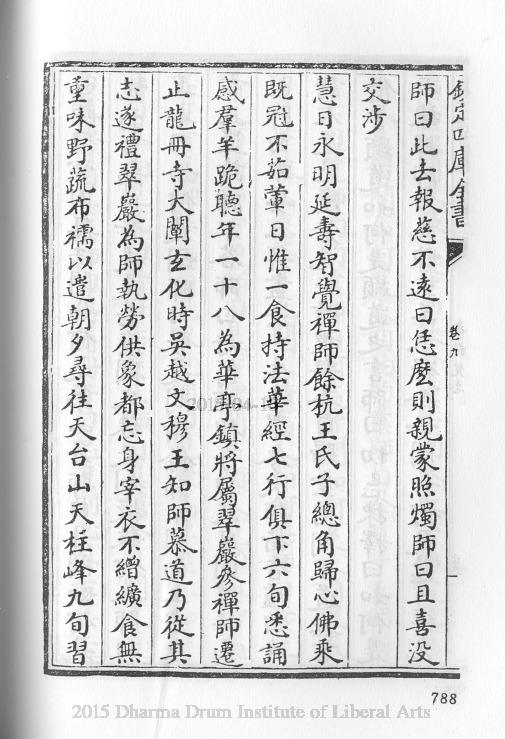 欽定四庫全書
卷九
師曰此去報慈不遠曰恁麽則親蒙照燭師曰且喜没
交涉
慧日永明延壽智覺禪師餘杭王氏子總角歸心佛乘
既冠不茹葷日惟一食持法華經七行俱下六旬悉誦
感羣羊跪聽年一十八為華亭鎮將屬翠巖參禪師遷
止龍冊寺大闡玄化時吳越文穆王知師慕道乃從其
志遂禮翠巖為師執勞供象都忘身宰衣不繒纊食無
重味野蔬布襦以遣朝夕尋往天台山天柱峰九旬習
788
2015 Dharma Drum Institute of Liberal Arts